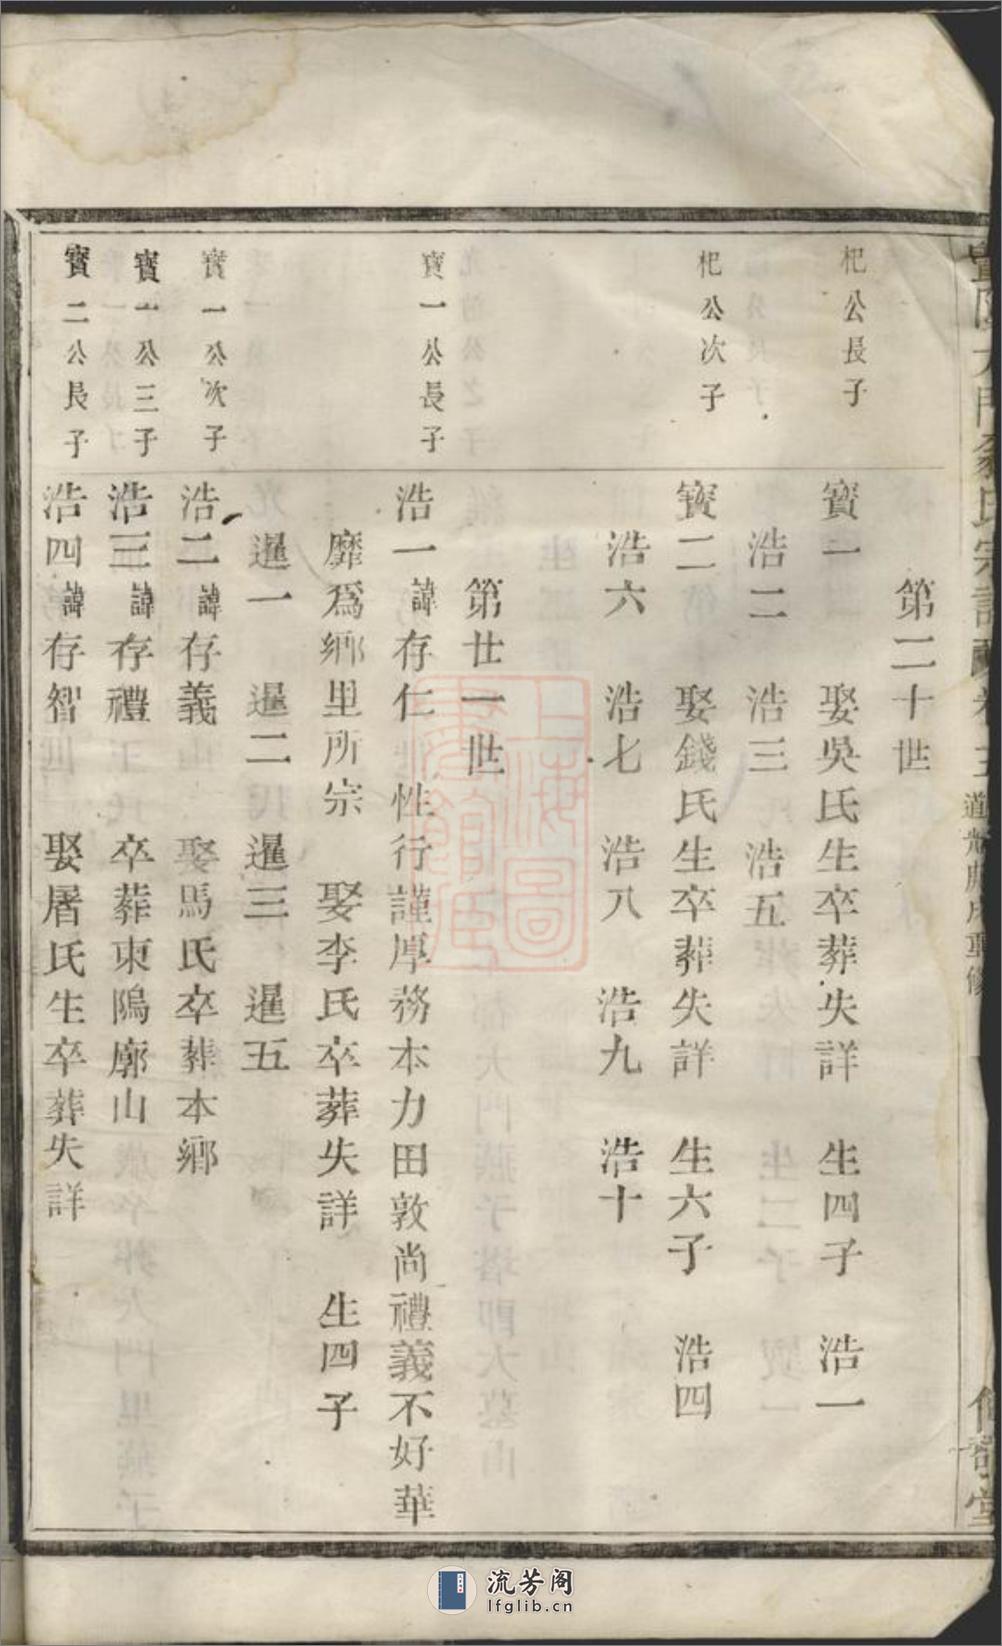 第二十世
杞公長子
寳一 娶吳氏生卒葬失詳 生四子 浩一
浩二 浩三 浩五
杞公次子
寳二 娶錢氏生卒葬失詳 生六子 浩四
浩六 浩七 浩八 浩九 浩十
第廿一世
寳一公長子
浩一諱存仁 性行謹厚務本力田敦尚禮義不好華
靡爲鄉里所宗 娶李氏卒葬失詳 生四子
暹一 暹二 暹三 暹五
寳一公次子
浩二諱存義 娶馬氏卒葬本鄉
寳一公三子
浩三諱存禮 卒葬東隝廓山
寳二公長子
浩四諱存智 娶屠氏生卒葬失詳
上海圖書館藏
流芳阁
lfglib.cn